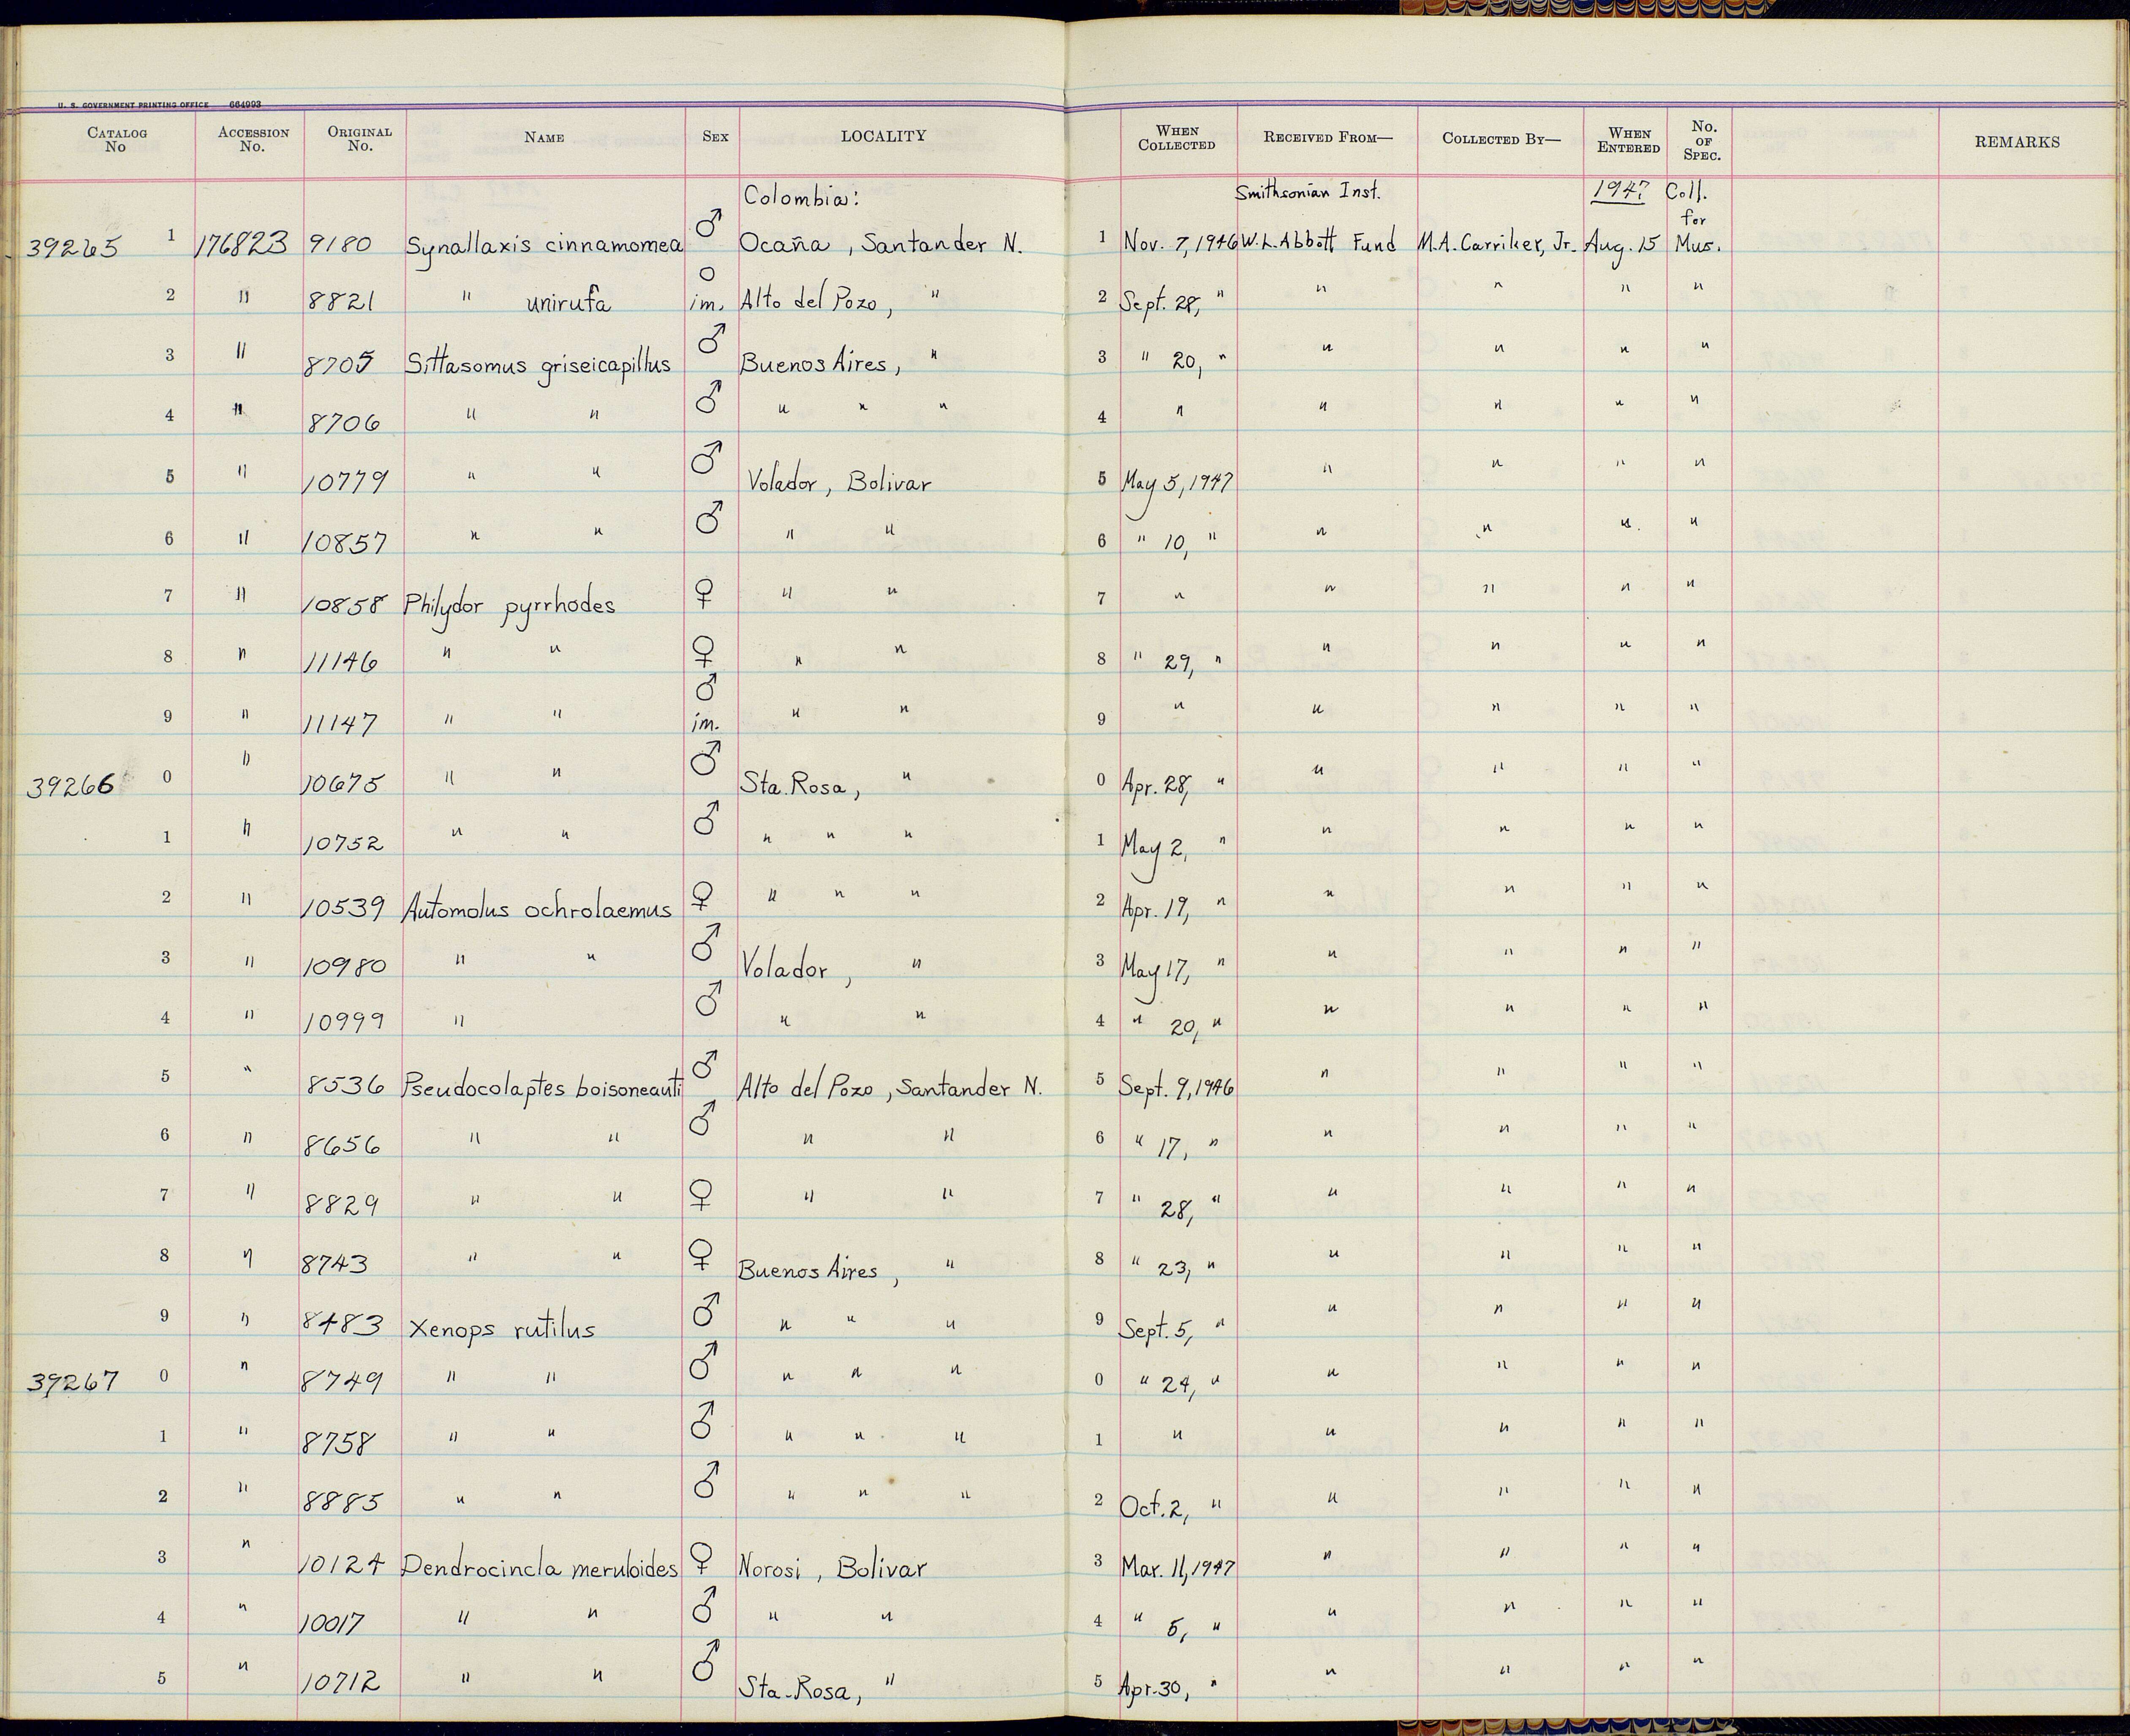 U. S. GOVERNMENT PRINTING OFFICE 664993
CATALOG No ACCESSION No. ORIGINAL No. NAME SEX LOCALITY WHEN COLLECTED RECEIVED FROM— COLLECTED BY— WHEN ENTERED No. OF SPEC. REMARKS
Colombia: Smithsonian Inst. 1947 Coll. for
39265 1 176823 9180 Synallaxis cinnamomea ♂ Ocaña, Santander N. 1 Nov. 7, 1946 W.L. Abbott Fund M.A. Carriker, Jr. Aug. 15 Mus.
2 " 8821 " unirufa O im. Alto del Pozo, " 2 Sept. 28, " " " " "
3 " 8705 Sittasomus griseicapillus ♂ Buenos Aires, " 3 " 20, " " " " "
4 " 8706 " " ♂ " " " 4 " " " " "
5 " 10779 " " ♂ Volador, Bolivar 5 May 5, 1947 " " " "
6 " 10857 " " ♂ " " 6 " 10, " " " " "
7 " 10858 Philydor pyrrhodes ♀ " " 7 " " " " "
8 " 11146 " " ♀ " " 8 " 29, " " " " "
9 " 11147 " " ♂ im. " " 9 " " " " "
39266 0 " 10675 " " ♂ Sta. Rosa, " 0 Apr. 28, " " " " "
1 " 10752 " " ♂ " " " 1 May 2, " " " " "
2 " 10539 Automolus ochrolaemus ♀ " " " 2 Apr. 19, " " " " "
3 " 10980 " " ♂ Volador, " 3 May 17, " " " " "
4 " 10999 " ♂ " " 4 " 20, " " " " "
5 " 8536 Pseudocolaptes boisoneauti ♂ Alto del Pozo, Santander N. 5 Sept. 9, 1946 " " " "
6 " 8656 " " ♂ " " 6 " 17, " " " " "
7 " 8829 " " ♀ " " 7 " 28, " " " " "
8 " 8743 " " ♀ Buenos Aires, " 8 " 23, " " " " "
9 " 8483 Xenops rutilus ♂ " " " 9 Sept. 5, " " " " "
39267 0 " 8749 " " ♂ " " " 0 " 24, " " " " "
1 " 8758 " " ♂ " " " 1 " " " " "
2 " 8885 " " ♂ " " " 2 Oct. 2, " " " " "
3 " 10124 Dendrocincla meruloides ♀ Norosi, Bolivar 3 Mar. 11, 1947 " " " "
4 " 10017 " " ♂ " " 4 " 5, " " " " "
5 " 10712 " " ♂ Sta. Rosa, " 5 Apr. 30, " " " " "